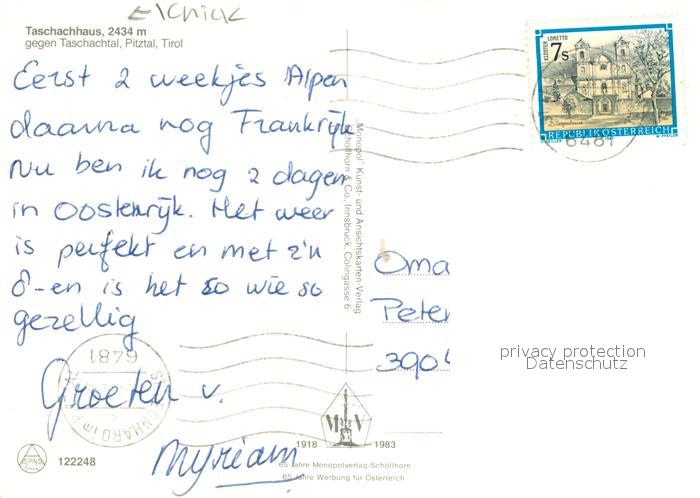 Taschachhaus, 2434 m
gegen Taschachtal, Pitztal, Tirol
Eerst 2 weekjes Alpen
daarna nog Frankrijk
Nu ben ik nog 2 dagen
in Oostenrijk. Het weer
is perfekt en met z'n
8-en is het so wie so
gezellig
Groeten v.
Myriam
122248
"Monopol" Kunst- und Ansichtskarten-Verlag
Schöllhorn & Co., Innsbruck, Colingasse 6
KLOSTER LORETTO
7s
REPUBLIK ÖSTERREICH
6481
Oma
Peter
390
privacy protection
Datenschutz
6481
1918 1983
65 Jahre Monopolverlag Schöllhorn
65 Jahre Werbung für Österreich